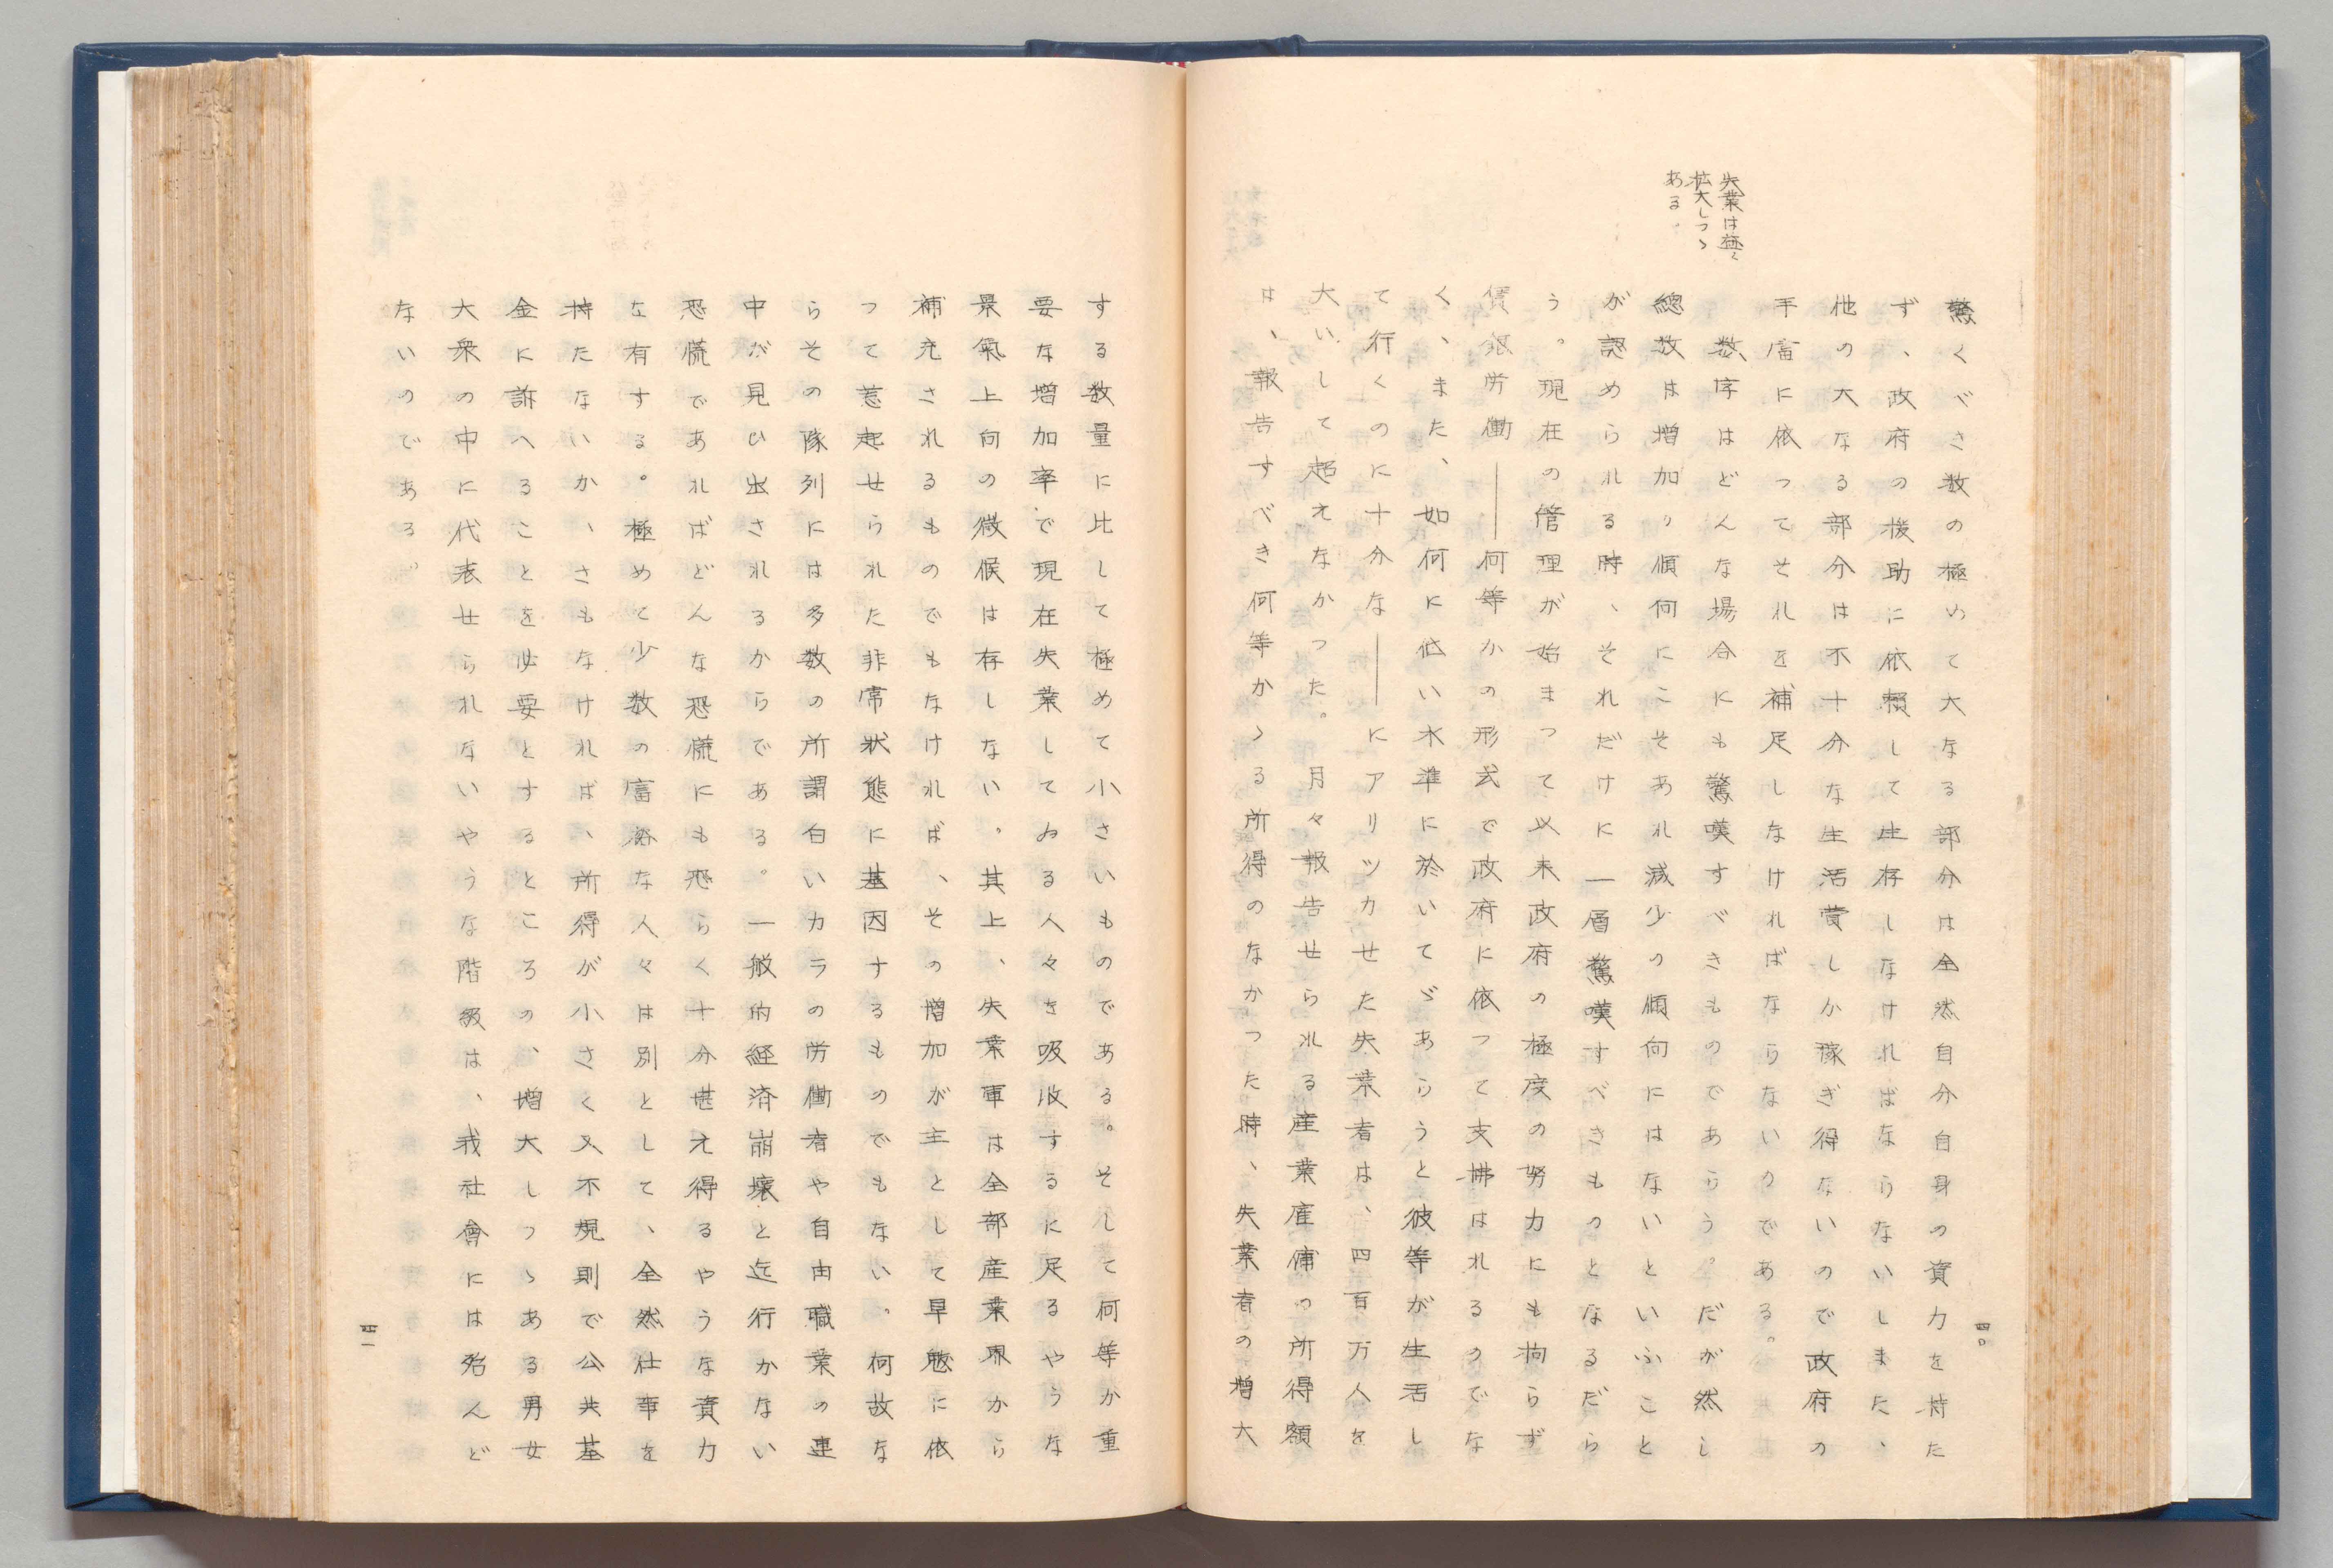 失業は益〻
拡大しつゝ
ある
驚くべき数の極めて大なる部分は全然自分自身の資力を持た
ず、政府の援助に依頼して生存しなければならないしまた、
他の大なる部分は不十分な生活費しか稼ぎ得ないので政府の
手當に依つてそれを補足しなければならないのである。
数字はどんな場合にも驚嘆すべきものであらう。だが然し
總数は増加の傾向にこそあれ減少の傾向にはないといふこと
が認められる時、それだけに一層驚嘆すべきものとなるだら
う。現在の管理が始まつて以来政府の極度の努力にも拘らず
賃銀労働──何等かの形式で政府に依つて支拂はれるのでな
く、また、如何に低い水準に於いてゞあらうと彼等が生活し
て行くのに十分な──にアリツカせた失業者は、四百万人を
大いして超えなかつた。月々報告せられる産業雇傭の所得額
は、報告すべき何等かゝる所得のなかつた時、失業者の増大
四〇
する数量に比して極めて小さいものである。そして何等か重
要な増加率で現在失業してゐる人々を吸收するに足るやうな
景氣上向の微候は存しない。其上、失業軍は全部産業界から
補充されるものでもなければ、その増加が主として早魃に依
つて惹起せられた非常狀態に基因するものでもない。何故な
らその隊列には多数の所謂白いカラの労働者や自由職業の連
中が見ひ出されるからである。一般的経済崩壞と迄行かない
恐慌であればどんな恐慌にも恐らく十分堪え得るやうな資力
な有する。極めて少数の富裕な人々は別として、全然仕事を
持たないか、さもなければ、所得が小さく又不規則で公共基
金に訴へることを必要とするところの、増大しつゝある男女
大衆の中に代表せられないやうな階級は、我社會には殆んど
ないのである。
四一